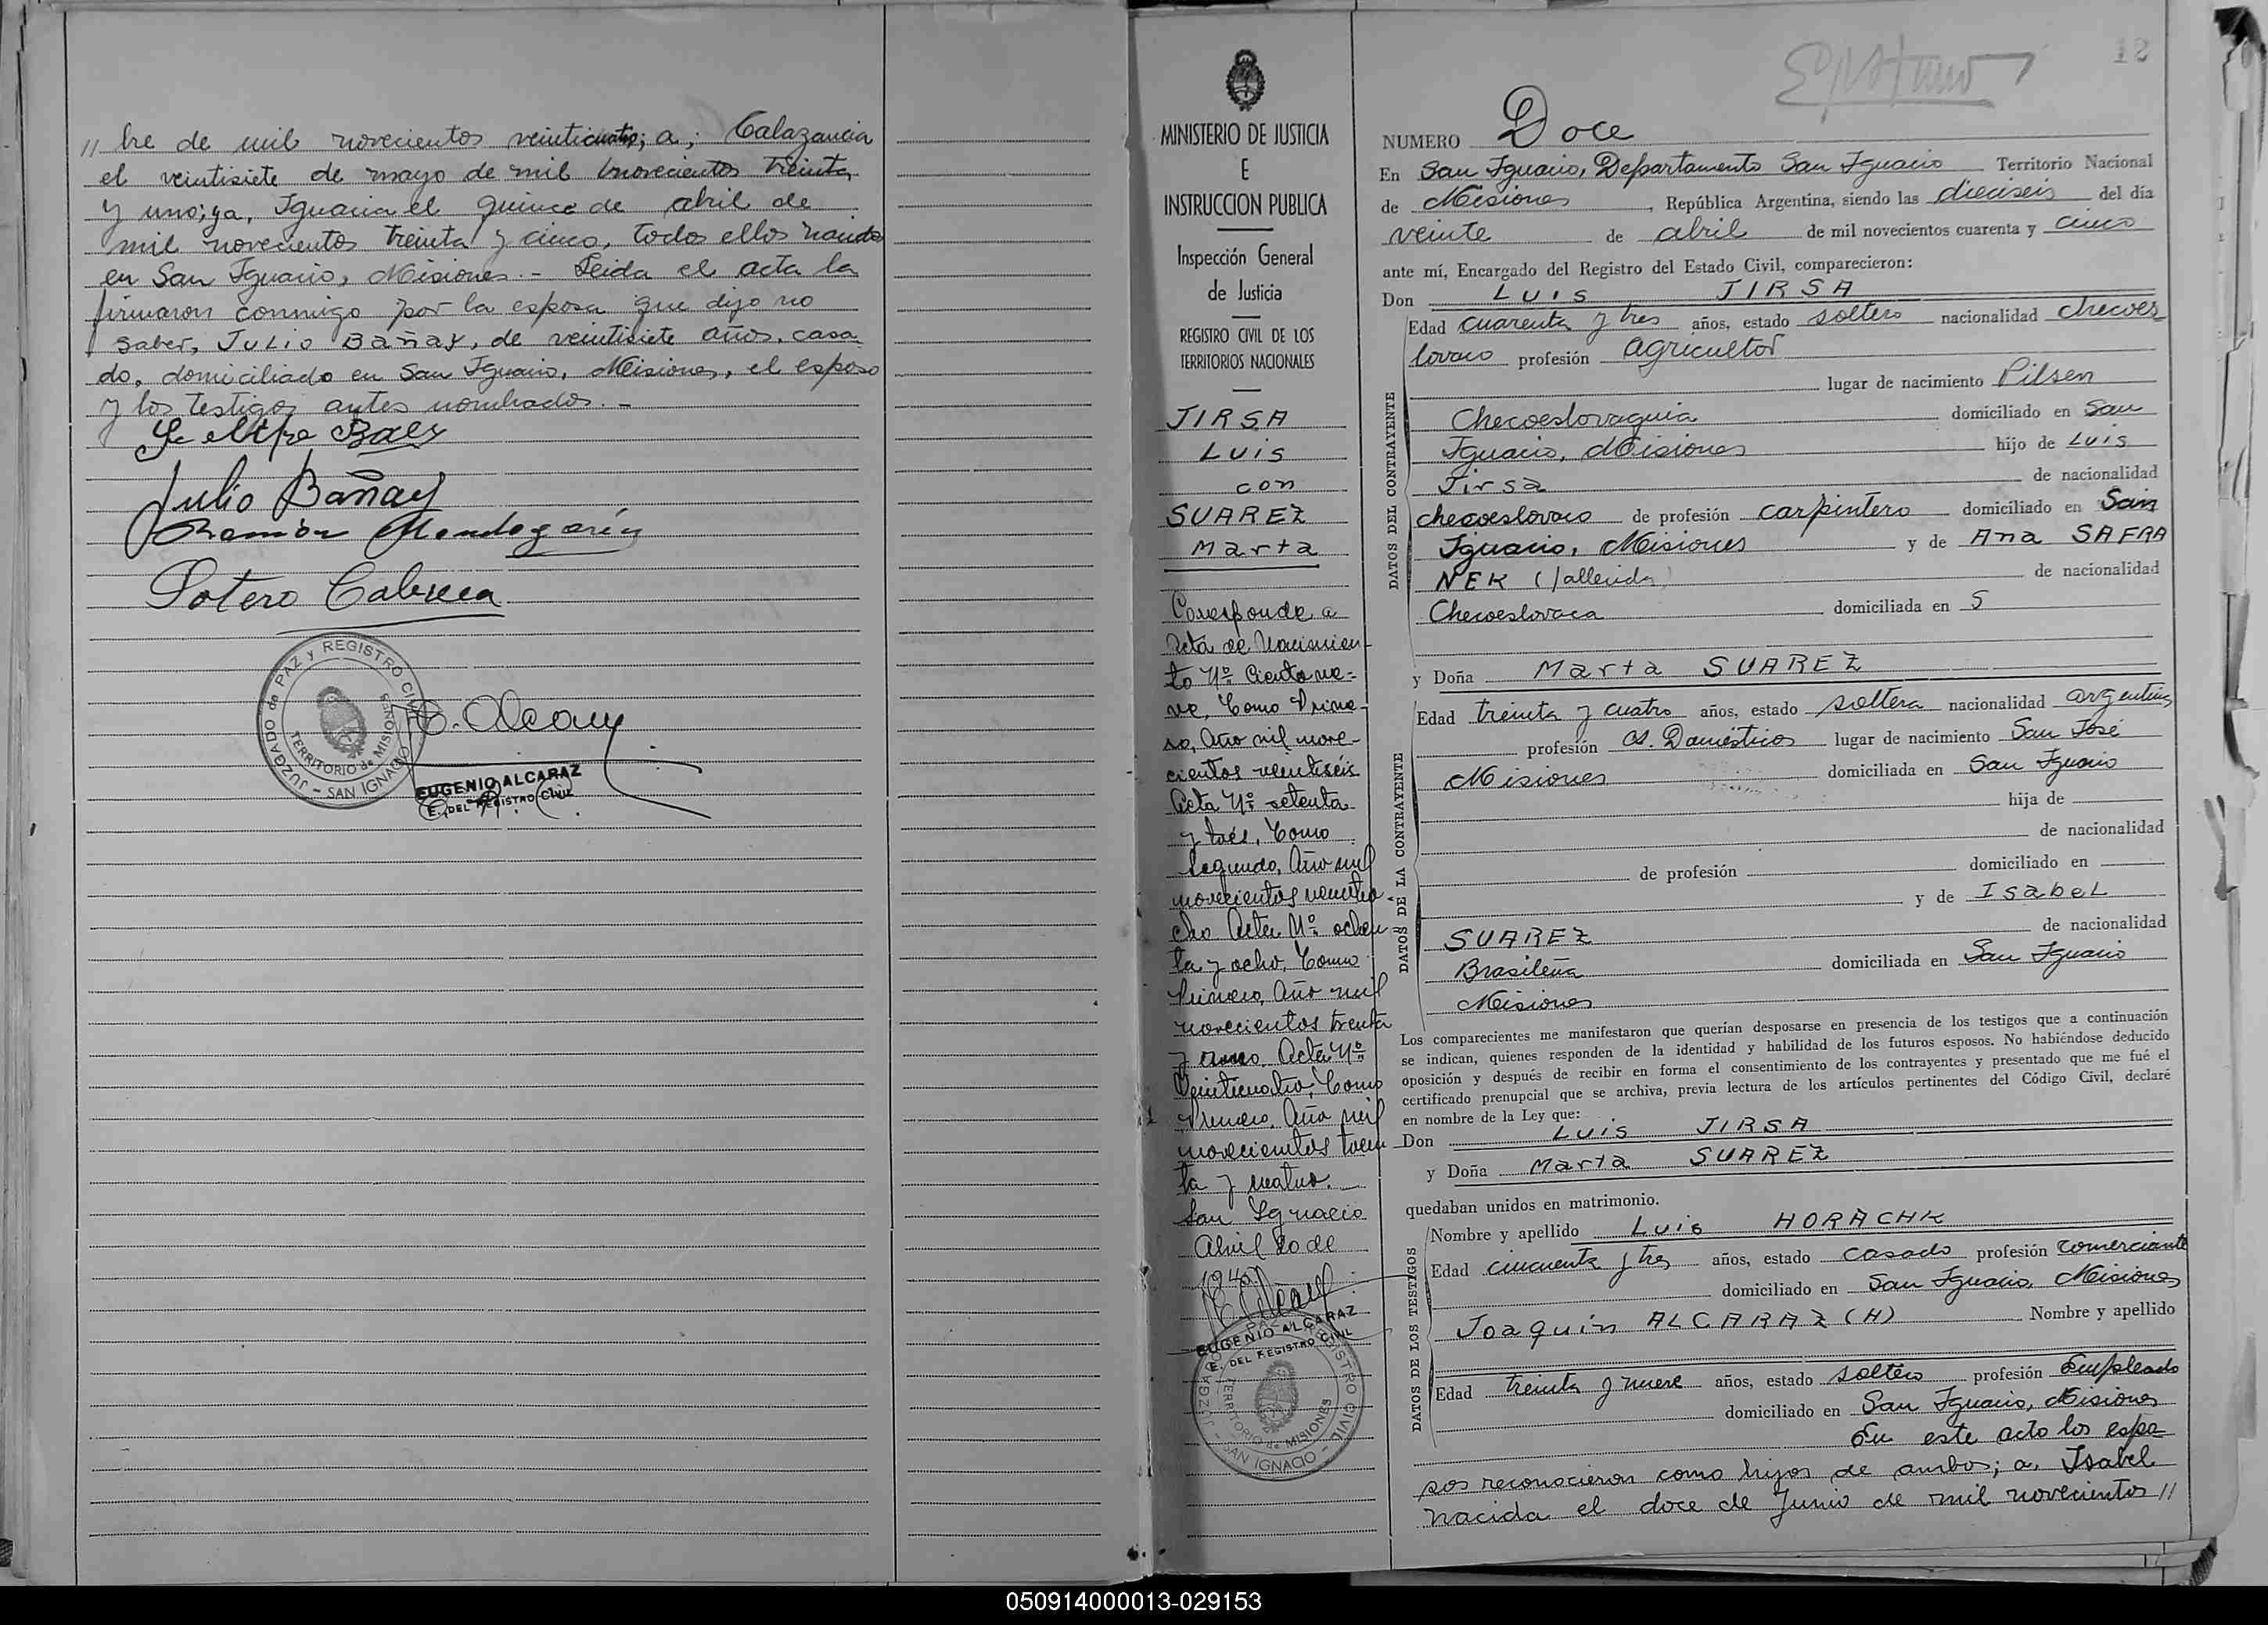 // bre de mil novecientos veinticuatro; a; Calazancia
el veintisiete de mayo de mil novecientos treinta
y uno; ya, Ignacia el quince de abril de
mil novecientos treinta y cinco, todos ellos nacidos
en San Ignacio, Misiones.- Leida el acta la
firmaron conmigo por la esposa que dijo no
saber, JULIO BAÑAY, de veintisiete años, casa-
do, domiciliado en San Ignacio, Misiones, el esposo
y los testigos antes nombrados.-
Baes
Julio Bañay
Ramón
Sotero Cabrera
JUZGADO de PAZ y REGISTRO CIVIL
TERRITORIO de MISIONES
- SAN IGNACIO -
E. Alcaraz
EUGENIO ALCARAZ
E. DEL REGISTRO CIVIL
MINISTERIO DE JUSTICIA
E
INSTRUCCION PUBLICA
Inspección General
de Justicia
REGISTRO CIVIL DE LOS
TERRITORIOS NACIONALES
JIRSA
Luis
con
SUAREZ
Marta
Corresponde a
Acta de Nacimien-
to Nº Ciento nue-
ve, Tomo Prime-
ro, Año mil nove-
cientos veintiseis
Acta Nº setenta
y tres, Tomo
Segundo, Año mil
novecientos veintio-
cho Acta Nº ochen
ta y ocho, Tomo
Primero, Año mil
novecientos treinta
y Acta Nº
Veinticuatro, Tomo
Primero, Año mil
novecientos trein
ta y cuatro.
San Ignacio
Abril 20 de
194
EUGENIO ALCARAZ
E. DEL REGISTRO CIVIL
JUZGADO de PAZ y REGISTRO CIVIL
TERRITORIO de MISIONES
- SAN IGNACIO -
12
NUMERO Doce
En San Ignacio, Departamento San Ignacio Territorio Nacional
de Misiones, República Argentina, siendo las dieciseis del día
veinte de abril de mil novecientos cuarenta y cinco
ante mí, Encargado del Registro del Estado Civil, comparecieron:
Don LUIS JIRSA
DATOS DEL CONTRAYENTE
Edad cuarenta y tres años, estado soltero nacionalidad checoes
lovaco profesión agricultor
lugar de nacimiento Pilsen
Checoeslovaquia domiciliado en San
Ignacio, Misiones hijo de Luis
Jirsa de nacionalidad
checoeslovaco de profesión carpintero domiciliado en San
Ignacio, Misiones y de Ana SAFRA
NEK (fallecida) de nacionalidad
Checoeslovaca domiciliada en S
y Doña Marta SUAREZ
DATOS DE LA CONTRAYENTE
Edad treinta y cuatro años, estado soltera nacionalidad argentina
profesión Qs. Domésticos lugar de nacimiento San José
Misiones domiciliada en San Ignacio
hija de
de nacionalidad
de profesión domiciliado en
y de Isabel
SUAREZ de nacionalidad
Brasileña domiciliada en San Ignacio
Misiones
Los comparecientes me manifestaron que querían desposarse en presencia de los testigos que a continuación
se indican, quienes responden de la identidad y habilidad de los futuros esposos. No habiéndose deducido
oposición y después de recibir en forma el consentimiento de los contrayentes y presentado que me fué el
certificado prenupcial que se archiva, previa lectura de los artículos pertinentes del Código Civil, declaré
en nombre de la Ley que:
Don Luis JIRSA
y Doña Marta SUAREZ
quedaban unidos en matrimonio.
DATOS DE LOS TESTIGOS
Nombre y apellido Luis HORACHK
Edad cincuenta y tres años, estado casado profesión comerciante
domiciliado en San Ignacio, Misiones
Joaquin ALCARAZ (H) Nombre y apellido
Edad treinta y nueve años, estado soltero profesión Empleado
domiciliado en San Ignacio, Misiones
En este acto los espo-
sos reconocieron como hijos de ambos; a, Isabel
nacida el doce de Junio de mil novecientos //
050914000013-029153